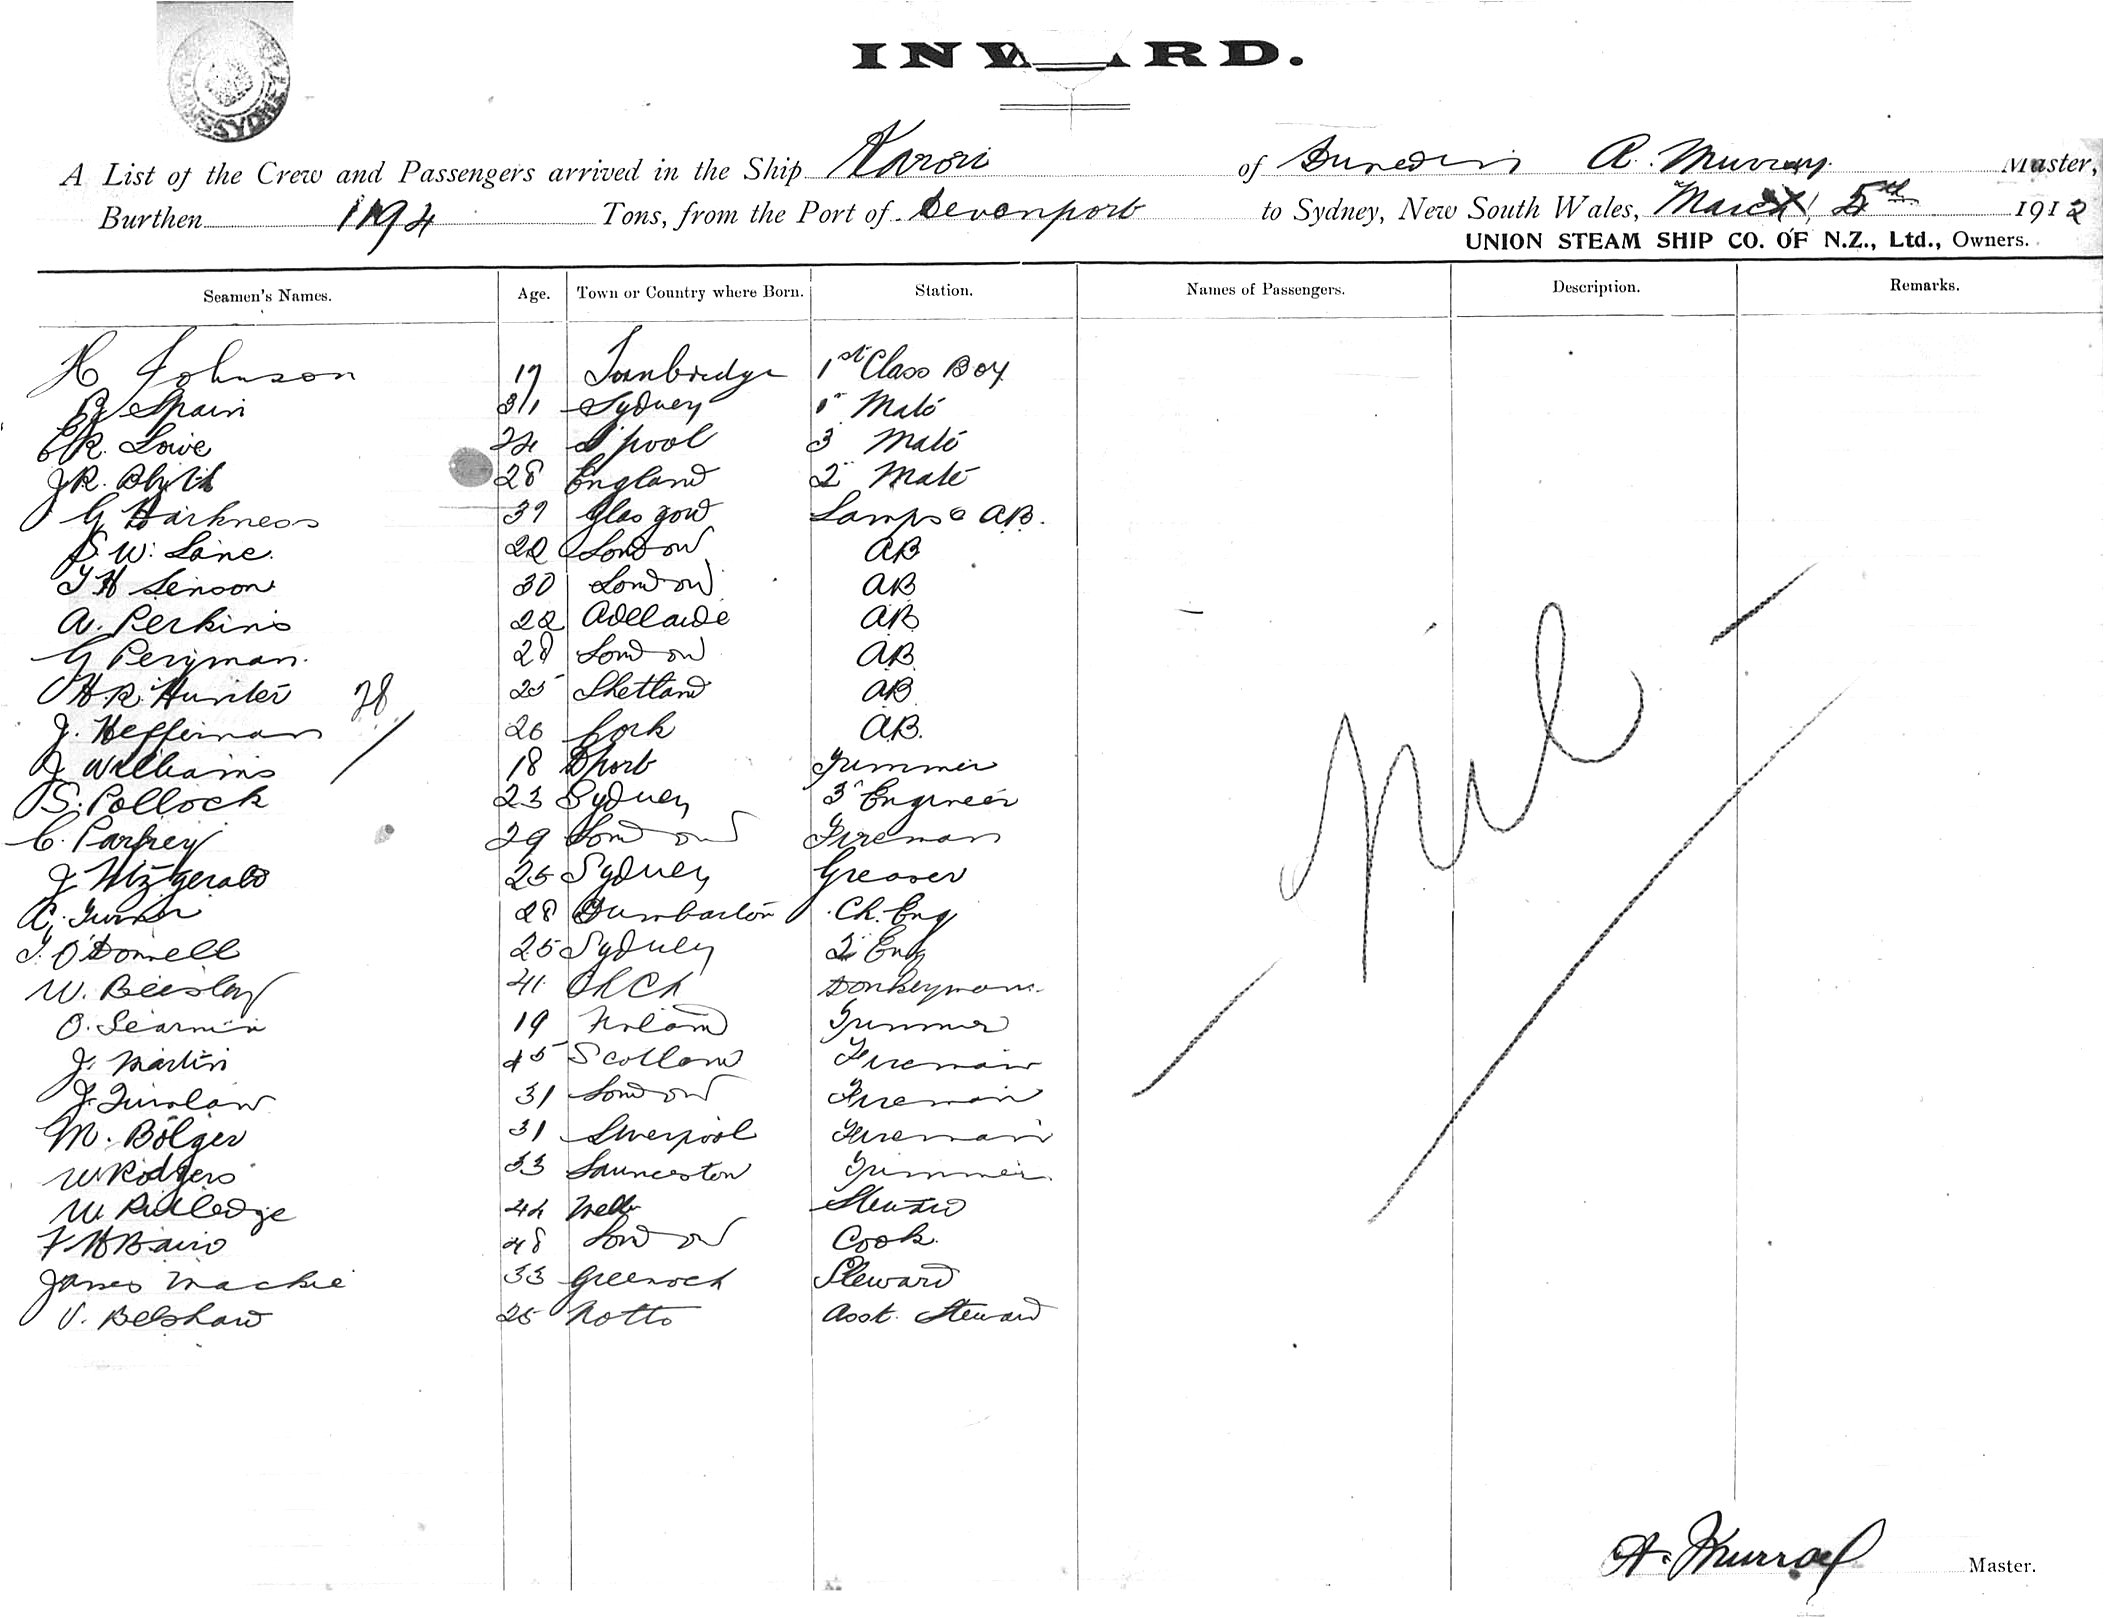 INWARD.
A List of the Crew and Passengers arrived in the Ship Karori of Dunedin A. Murray Master,
Burthen Tons, from the Port of Devonport to Sydney, New South Wales, March 5th 1912
UNION STEAM SHIP CO. OF N.Z., Ltd., Owners.
Seamen's Names. Age. Town or Country where Born. Station. Names of Passengers. Description. Remarks.
H Johnson 17 Tonbridge 1st Class Boy
Spain 31 Sydney 1" Mate
Lowe 24 L'pool 3 Mate
J R. 28 England 2" Mate
G Harkness 39 Glasgow Lamps & AB.
S. W. Lane. 22 London AB
T H 30 London AB
A. Perkins 22 Adelaide AB
G Peryman. 28 London AB
H. R. Hunter 25 Shetland AB
28
J. Heffernan 26 Cork AB.
J Williams 18 Dport Trimmer
S. Pollock 23 Sydney 3" Engineer
C. 29 London Fireman
J Fitzgerald 25 Sydney Greaser
A. Turner 28 Dumbarton Ch. Eng
T. O'Donnell 25 Sydney 2" Eng
W. Beesley 41 ChCh Donkeyman
O. 19 Trimmer
J. Martin 45 Scotland Fireman
J. 31 London Fireman
M. Bolger 31 Liverpool Fireman
W Rodgers 33 Launceston Trimmer
W. Rutledge 44 Steward
F H Baird 48 London Cook.
James Mackie 33 Greenock Steward
V. Belshaw 25 Notts Asst. Steward
Nil
A. Murray Master.